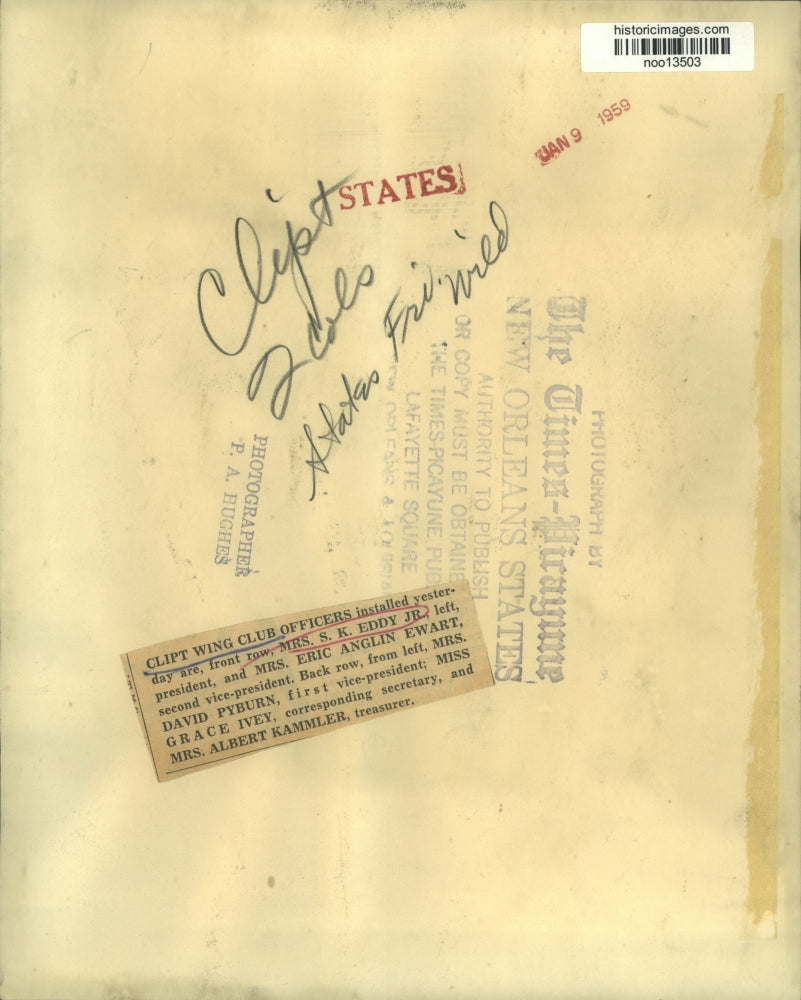 historicimages.com
noo13503
JAN 9 1959
STATES
Clipt
2 cols
States Fri. Wild
PHOTOGRAPH BY
The Times-Picayune
NEW ORLEANS STATES
AUTHORITY TO PUBLISH
OR COPY MUST BE OBTAINE
THE TIMES-PICAYUNE PUB
LAFAYETTE SQUARE
NEW ORLEANS
PHOTOGRAPHER
P. A. HUGHES
CLIPT WING CLUB OFFICERS installed yester-
day are, front row, MRS. S. K. EDDY JR., left,
president, and MRS. ERIC ANGLIN EWART,
second vice-president. Back row, from left, MRS.
DAVID PYBURN, first vice-president; MISS
GRACE IVEY, corresponding secretary, and
MRS. ALBERT KAMMLER, treasurer.